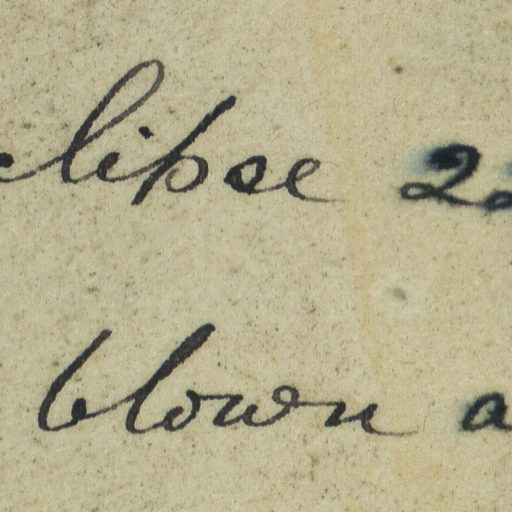 clipse 22
blown a